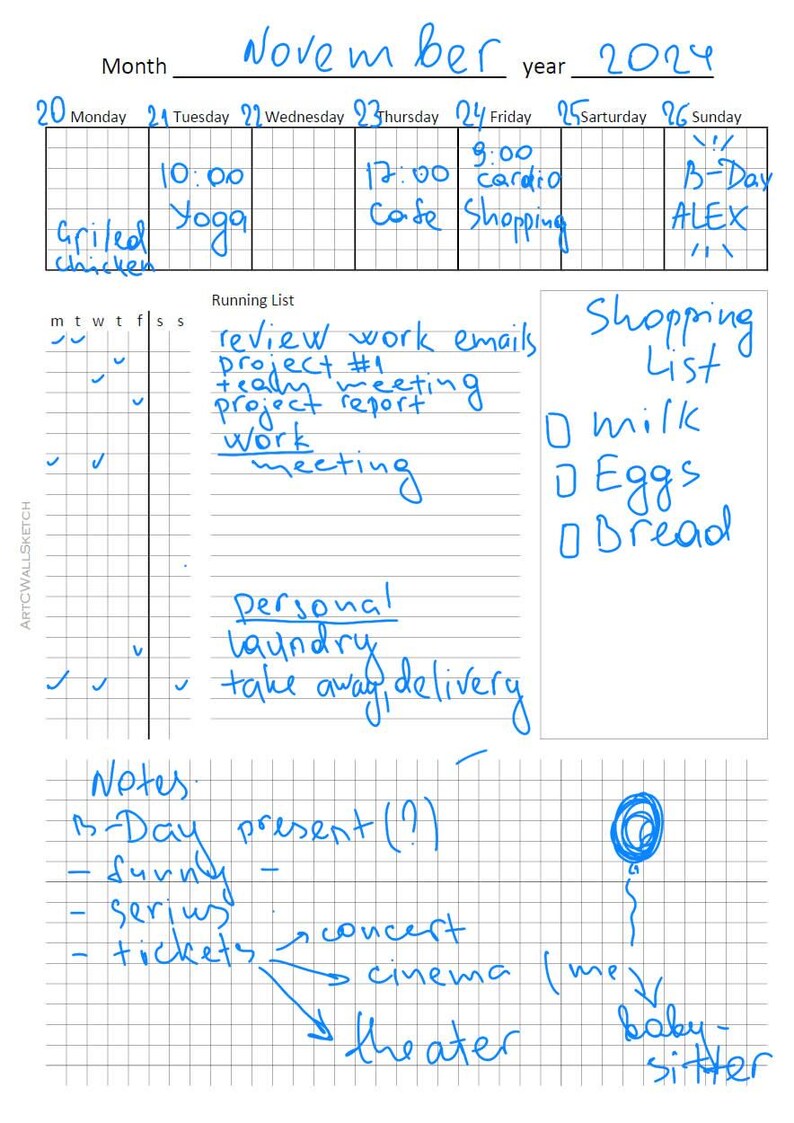 Month November year 2024
20 Monday 21 Tuesday 22 Wednesday 23 Thursday 24 Friday 25 Sarturday 26 Sunday
Griled
chicken
10:00
Yoga
17:00
Cafe
9:00
cardio
Shopping
B-Day
ALEX
m t w t f s s
Running List
review work emails
project #1
team meeting
project report
work
meeting
personal
laundry
take away, delivery
Shopping
List
milk
Eggs
Bread
ArtCWallSketch
Notes:
B-Day present (?)
- funny -
- serius
- tickets
concert
cinema (me
theater
baby-
sitter